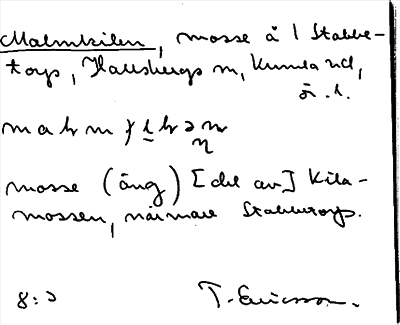 Malmkilen, mosse å 1 Stabbe-
torp, Hallsbergs sn, Kumla hd,
ö. l.
mosse (äng) [del av] Kila-
mossen, närmare Stabbetorp.
8:2 T. Ericsson.